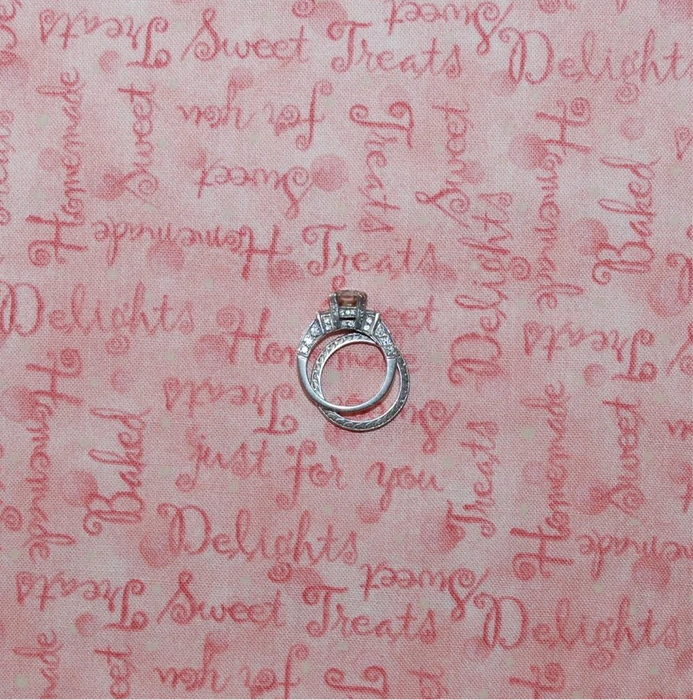 Sweet
Treats Sweet Treats Delights
Homemade
Sweet
for you
Treats
Sweet
Homemade
Sweet
Baked
Homemade Treats
Delights
Delights
Homemade
Sweet
Treats
Homemade
Treats
Baked
just for you
Treats
Homemade
Sweet
Delights
Homemade
Sweet
Treats Sweet Treats Delights
for you